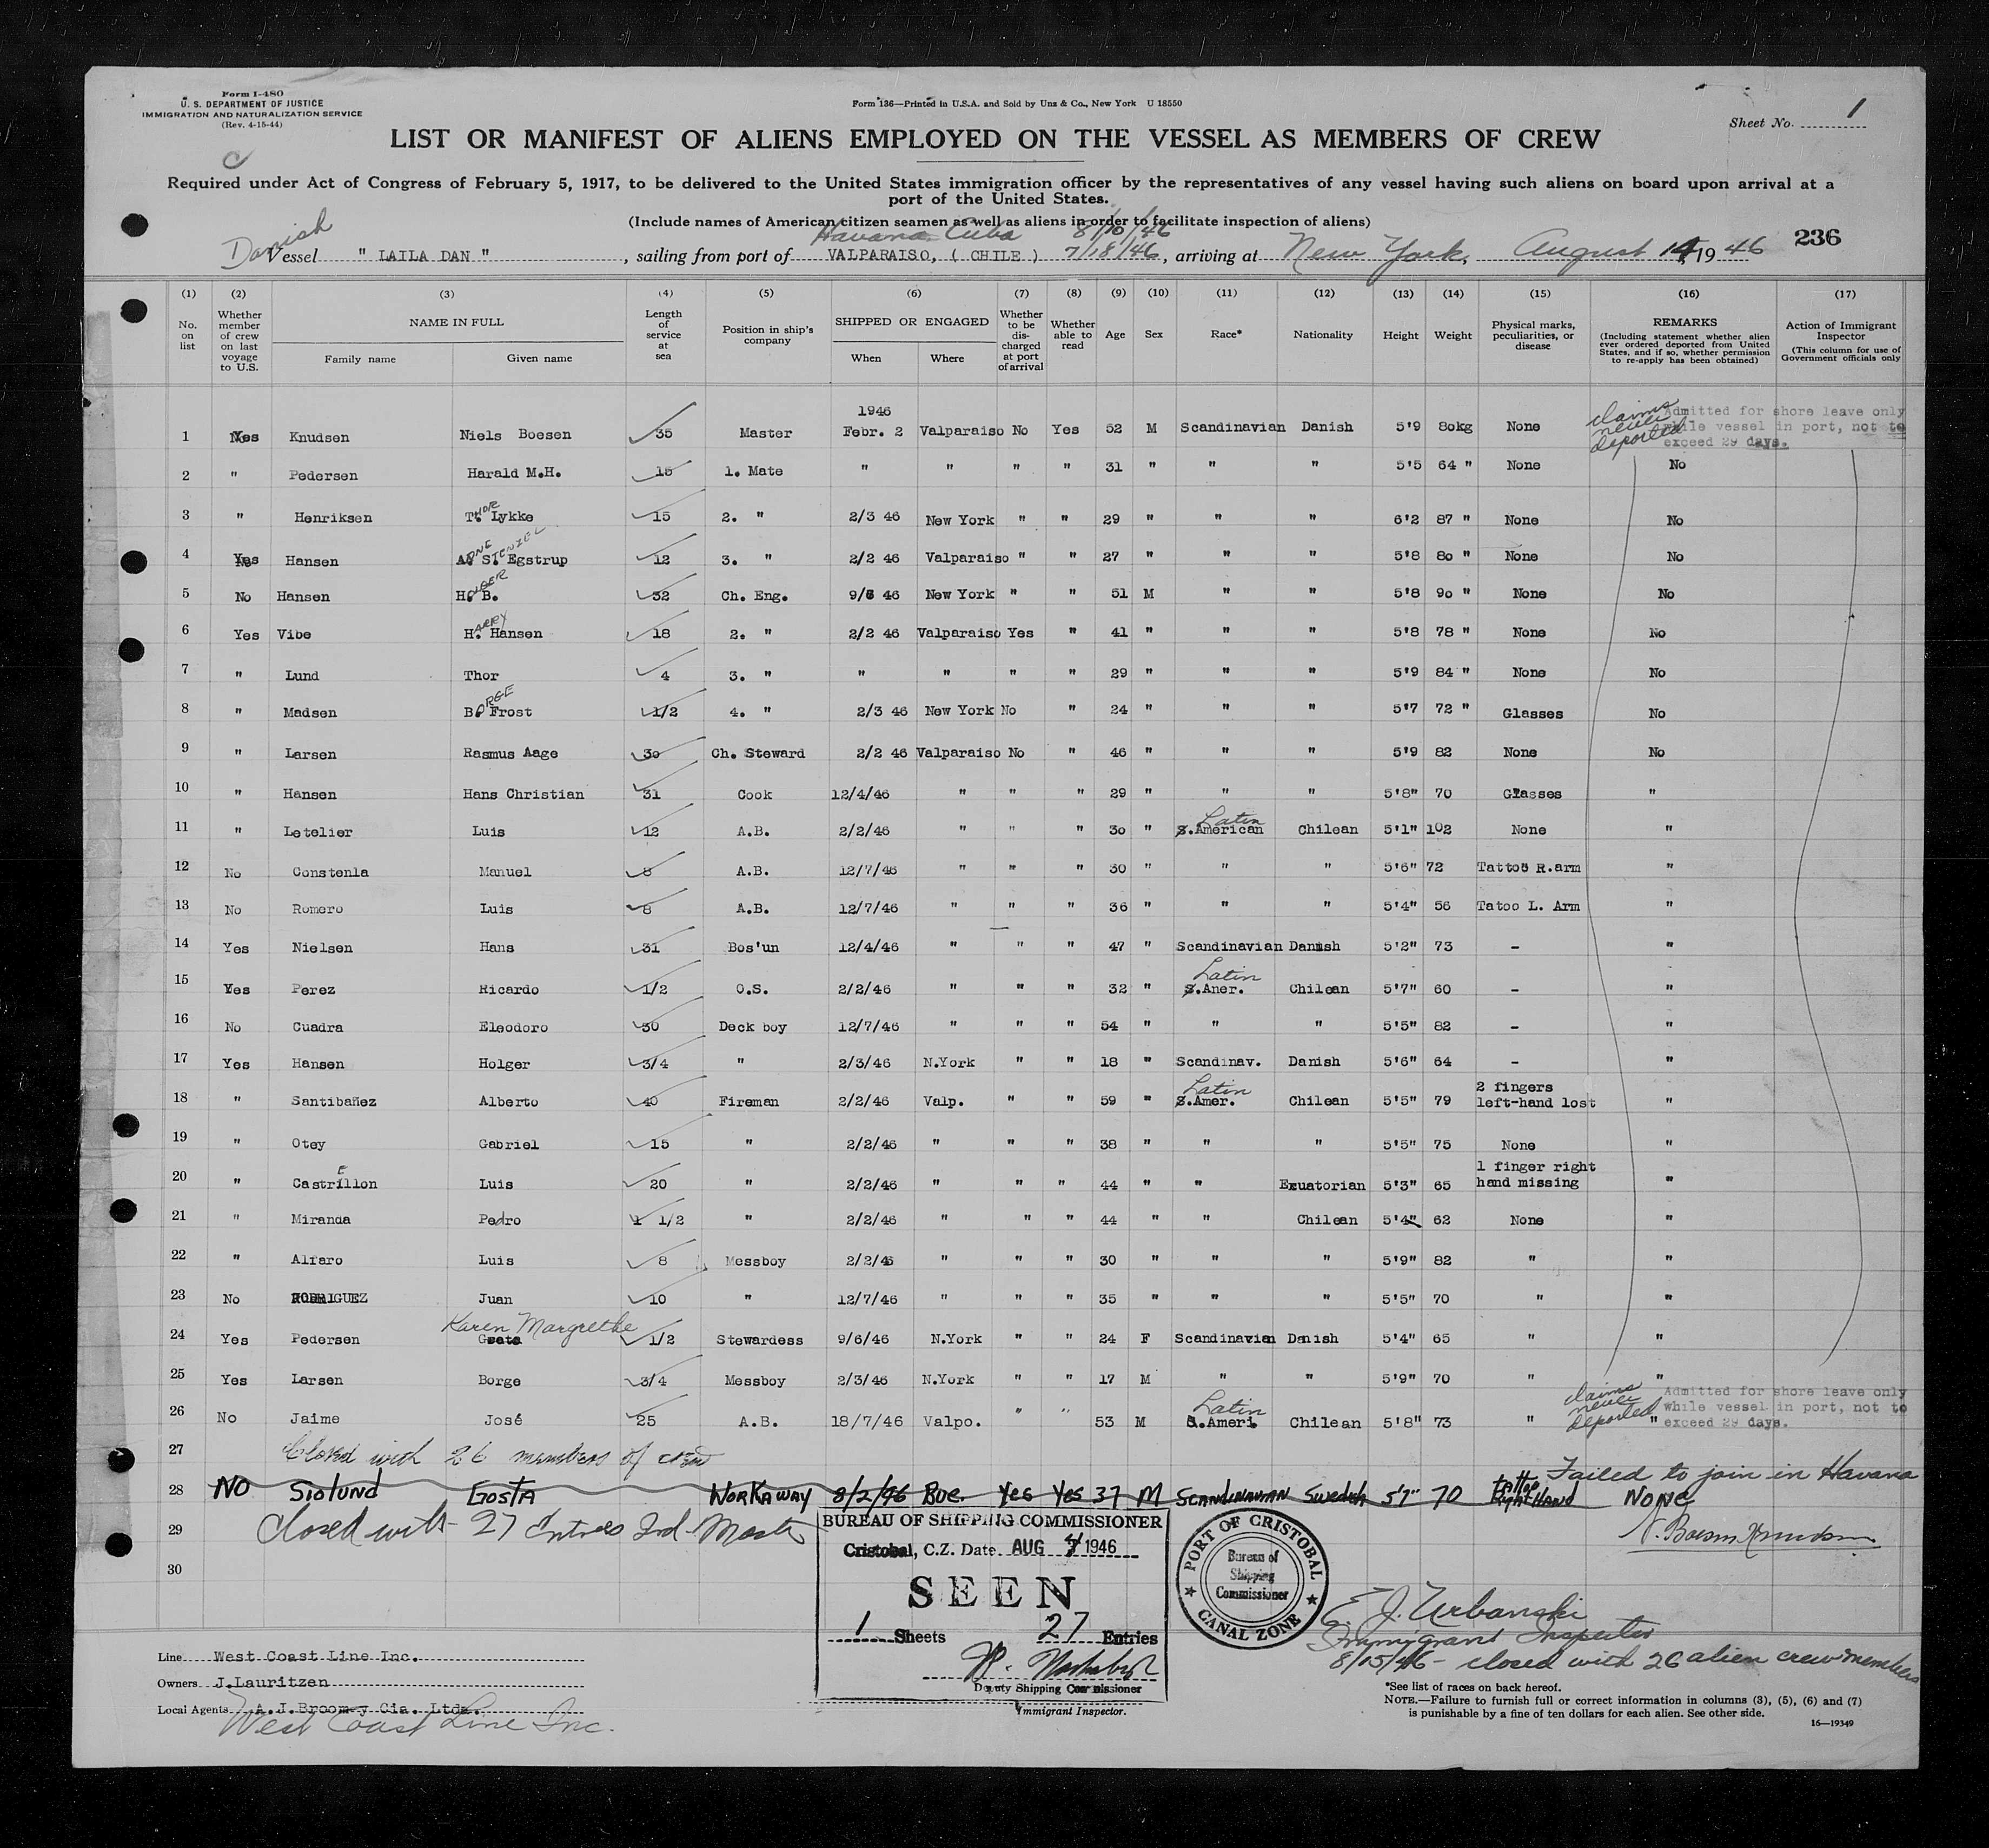 Form I-480
U. S. DEPARTMENT OF JUSTICE
IMMIGRATION AND NATURALIZATION SERVICE
(Rev. 4-15-44)
Form 136—Printed in U.S.A. and Sold by Unz & Co., New York U 18550
Sheet No. 1
LIST OR MANIFEST OF ALIENS EMPLOYED ON THE VESSEL AS MEMBERS OF CREW
Required under Act of Congress of February 5, 1917, to be delivered to the United States immigration officer by the representatives of any vessel having such aliens on board upon arrival at a
port of the United States.
(Include names of American citizen seamen as well as aliens in order to facilitate inspection of aliens)
Havana Cuba 8/10/46
Danish Vessel " LAILA DAN ", sailing from port of VALPARAISO, ( CHILE ) 7/18/46, arriving at New York, August 14, 1946 236
(1) (2) (3) (4) (5) (6) (7) (8) (9) (10) (11) (12) (13) (14) (15) (16) (17)
No. on list
Whether member of crew on last voyage to U.S.
NAME IN FULL
Family name Given name
Length of service at sea
Position in ship's company
SHIPPED OR ENGAGED
When Where
Whether to be discharged at port of arrival
Whether able to read
Age Sex Race* Nationality Height Weight
Physical marks, peculiarities, or disease
REMARKS
(Including statement whether alien ever ordered deported from United States, and if so, whether permission to re-apply has been obtained)
Action of Immigrant Inspector
(This column for use of Government officials only
1946
claims never deported
Admitted for shore leave only
while vessel in port, not to
exceed 29 days.
1 Yes Knudsen Niels Boesen 35 Master Febr. 2 Valparaiso No Yes 52 M Scandinavian Danish 5'9 80kg None
2 " Pedersen Harald M.H. 15 1. Mate " " " " 31 " " " 5'5 64 " None No
3 " Henriksen THOR Lykke 15 2. " 2/3 46 New York " " 29 " " " 6'2 87 " None No
4 Yes Hansen ARNE S. Egstrup 12 3. " 2/2 46 Valparaiso " " 27 " " " 5'8 80 " None No
5 No Hansen HOLGER B. 32 Ch. Eng. 9/6 46 New York " " 51 M " " 5'8 90 " None No
6 Yes Vibe HARRY Hansen 18 2. " 2/2 46 Valparaiso Yes " 41 " " " 5'8 78 " None No
7 " Lund Thor 4 3. " " " " " 29 " " " 5'9 84 " None No
8 " Madsen BORGE Frost 1/2 4. " 2/3 46 New York No " 24 " " " 5'7 72 " Glasses No
9 " Larsen Rasmus Aage 30 Ch. Steward 2/2 46 Valparaiso No " 46 " " " 5'9 82 None No
10 " Hansen Hans Christian 31 Cook 12/4/46 " " " 29 " " " 5'8" 70 Glasses "
11 " Letelier Luis 12 A.B. 2/2/46 " " " 30 " Latin S.American Chilean 5'1" 102 None "
12 No Constenla Manuel 8 A.B. 12/7/46 " " " 30 " " " 5'6" 72 Tattoo R.arm "
13 No Romero Luis 8 A.B. 12/7/46 " " " 36 " " " 5'4" 56 Tatoo L. Arm "
14 Yes Nielsen Hans 31 Bos'un 12/4/46 " " " 47 " Scandinavian Danish 5'2" 73 - "
15 Yes Perez Ricardo 1/2 O.S. 2/2/46 " " " 32 " Latin S.Aner. Chilean 5'7" 60 - "
16 No Cuadra Eleodoro 30 Deck boy 12/7/46 " " " 54 " " " 5'5" 82 - "
17 Yes Hansen Holger 3/4 " 2/3/46 N.York " " 18 " Scandinav. Danish 5'6" 64 - "
18 " Santibañez Alberto 40 Fireman 2/2/46 Valp. " " 59 " Latin S.Amer. Chilean 5'5" 79 2 fingers left-hand lost "
19 " Otey Gabriel 15 " 2/2/46 " " " 38 " " " 5'5" 75 None "
20 " Castrillon E Luis 20 " 2/2/46 " " " 44 " " Exuatorian 5'3" 65 1 finger right hand missing "
21 " Miranda Pedro 1 1/2 " 2/2/46 " " " 44 " " Chilean 5'4" 62 None "
22 " Alfaro Luis 8 Messboy 2/2/46 " " " 30 " " " 5'9" 82 " "
23 No RODRIGUEZ Juan 10 " 12/7/46 " " " 35 " " " 5'5" 70 " "
24 Yes Pedersen Karen Margrethe 1/2 Stewardess 9/6/46 N.York " " 24 F Scandinavian Danish 5'4" 65 " "
25 Yes Larsen Borge 3/4 Messboy 2/3/46 N.York " " 17 M " " 5'9" 70 " "
26 No Jaime José 25 A.B. 18/7/46 Valpo. " " 53 M Latin S.Ameri Chilean 5'8" 73 " "
claims never deported
Admitted for shore leave only
while vessel in port, not to
exceed 29 days.
27 Closed with 26 members of crew
Failed to join in Havana
28 No GOSTA WORKAWAY 8/2/46 Bue. Yes Yes 37 M SCANDINAVIAN Swedish 5'7" 70 tattoo Right HAND None
29 Closed with 27 Entries Ind. Master
N. Boesen Knudsen
30
BUREAU OF SHIPPING COMMISSIONER
Cristobal, C.Z. Date AUG 1946
SEEN
1 Sheets 27 Entries
Deputy Shipping Commissioner
Immigrant Inspector.
PORT OF CRISTOBAL
Bureau of
Shipping
Commissioner
CANAL ZONE
E. J. Urbanski
Immigrant Inspector
8/15/46 - closed with 26 alien crew members
Line West Coast Line Inc.
Owners J.Lauritzen
Local Agents A.J.Broom y Cia. Ltda.
West Coast Line Inc.
*See list of races on back hereof.
NOTE.—Failure to furnish full or correct information in columns (3), (5), (6) and (7)
is punishable by a fine of ten dollars for each alien. See other side.
16—19349